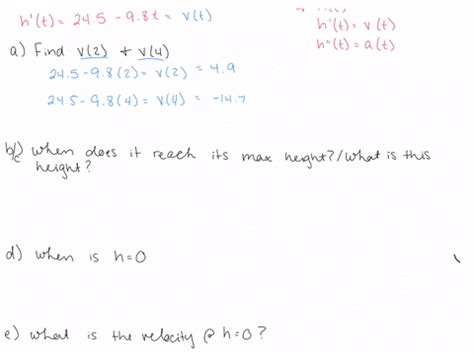 h'(t) = 24.5 - 9.8t = v(t)
h'(t) = v(t)
h"(t) = a(t)
a) Find v(2) + v(4)
24.5 - 9.8(2) = v(2) = 4.9
24.5 - 9.8(4) = v(4) = -14.7
b/c) when does it reach its max height?/what is this
height?
d) when is h=0
e) what is the velocity @ h=0?